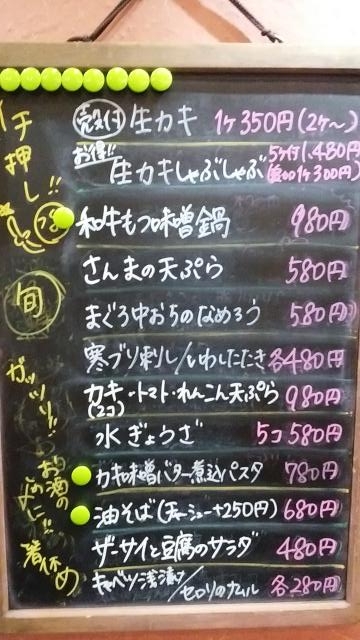 イチ押し!!
旬
ガッツリ!!
お酒の
箸休め
殻付 生カキ 1ケ350円(2ケ~)
お得!! 生カキしゃぶしゃぶ 5ケ付1,480円
1ケ300円)
和牛もつ味噌鍋 980円
さんまの天ぷら 580円
まぐろ中おちのなめろう 580円
寒ブリ刺し/いわしたたき 各480円
カキ・トマト・れんこん天ぷら 980円
(2コ)
水ぎょうざ 5コ580円
カキ味噌バター煮込パスタ 780円
油そば(チャーシュー+250円) 680円
ザーサイと豆腐のサラダ 480円
キャベツ浅漬け/セロリのナムル 各280円